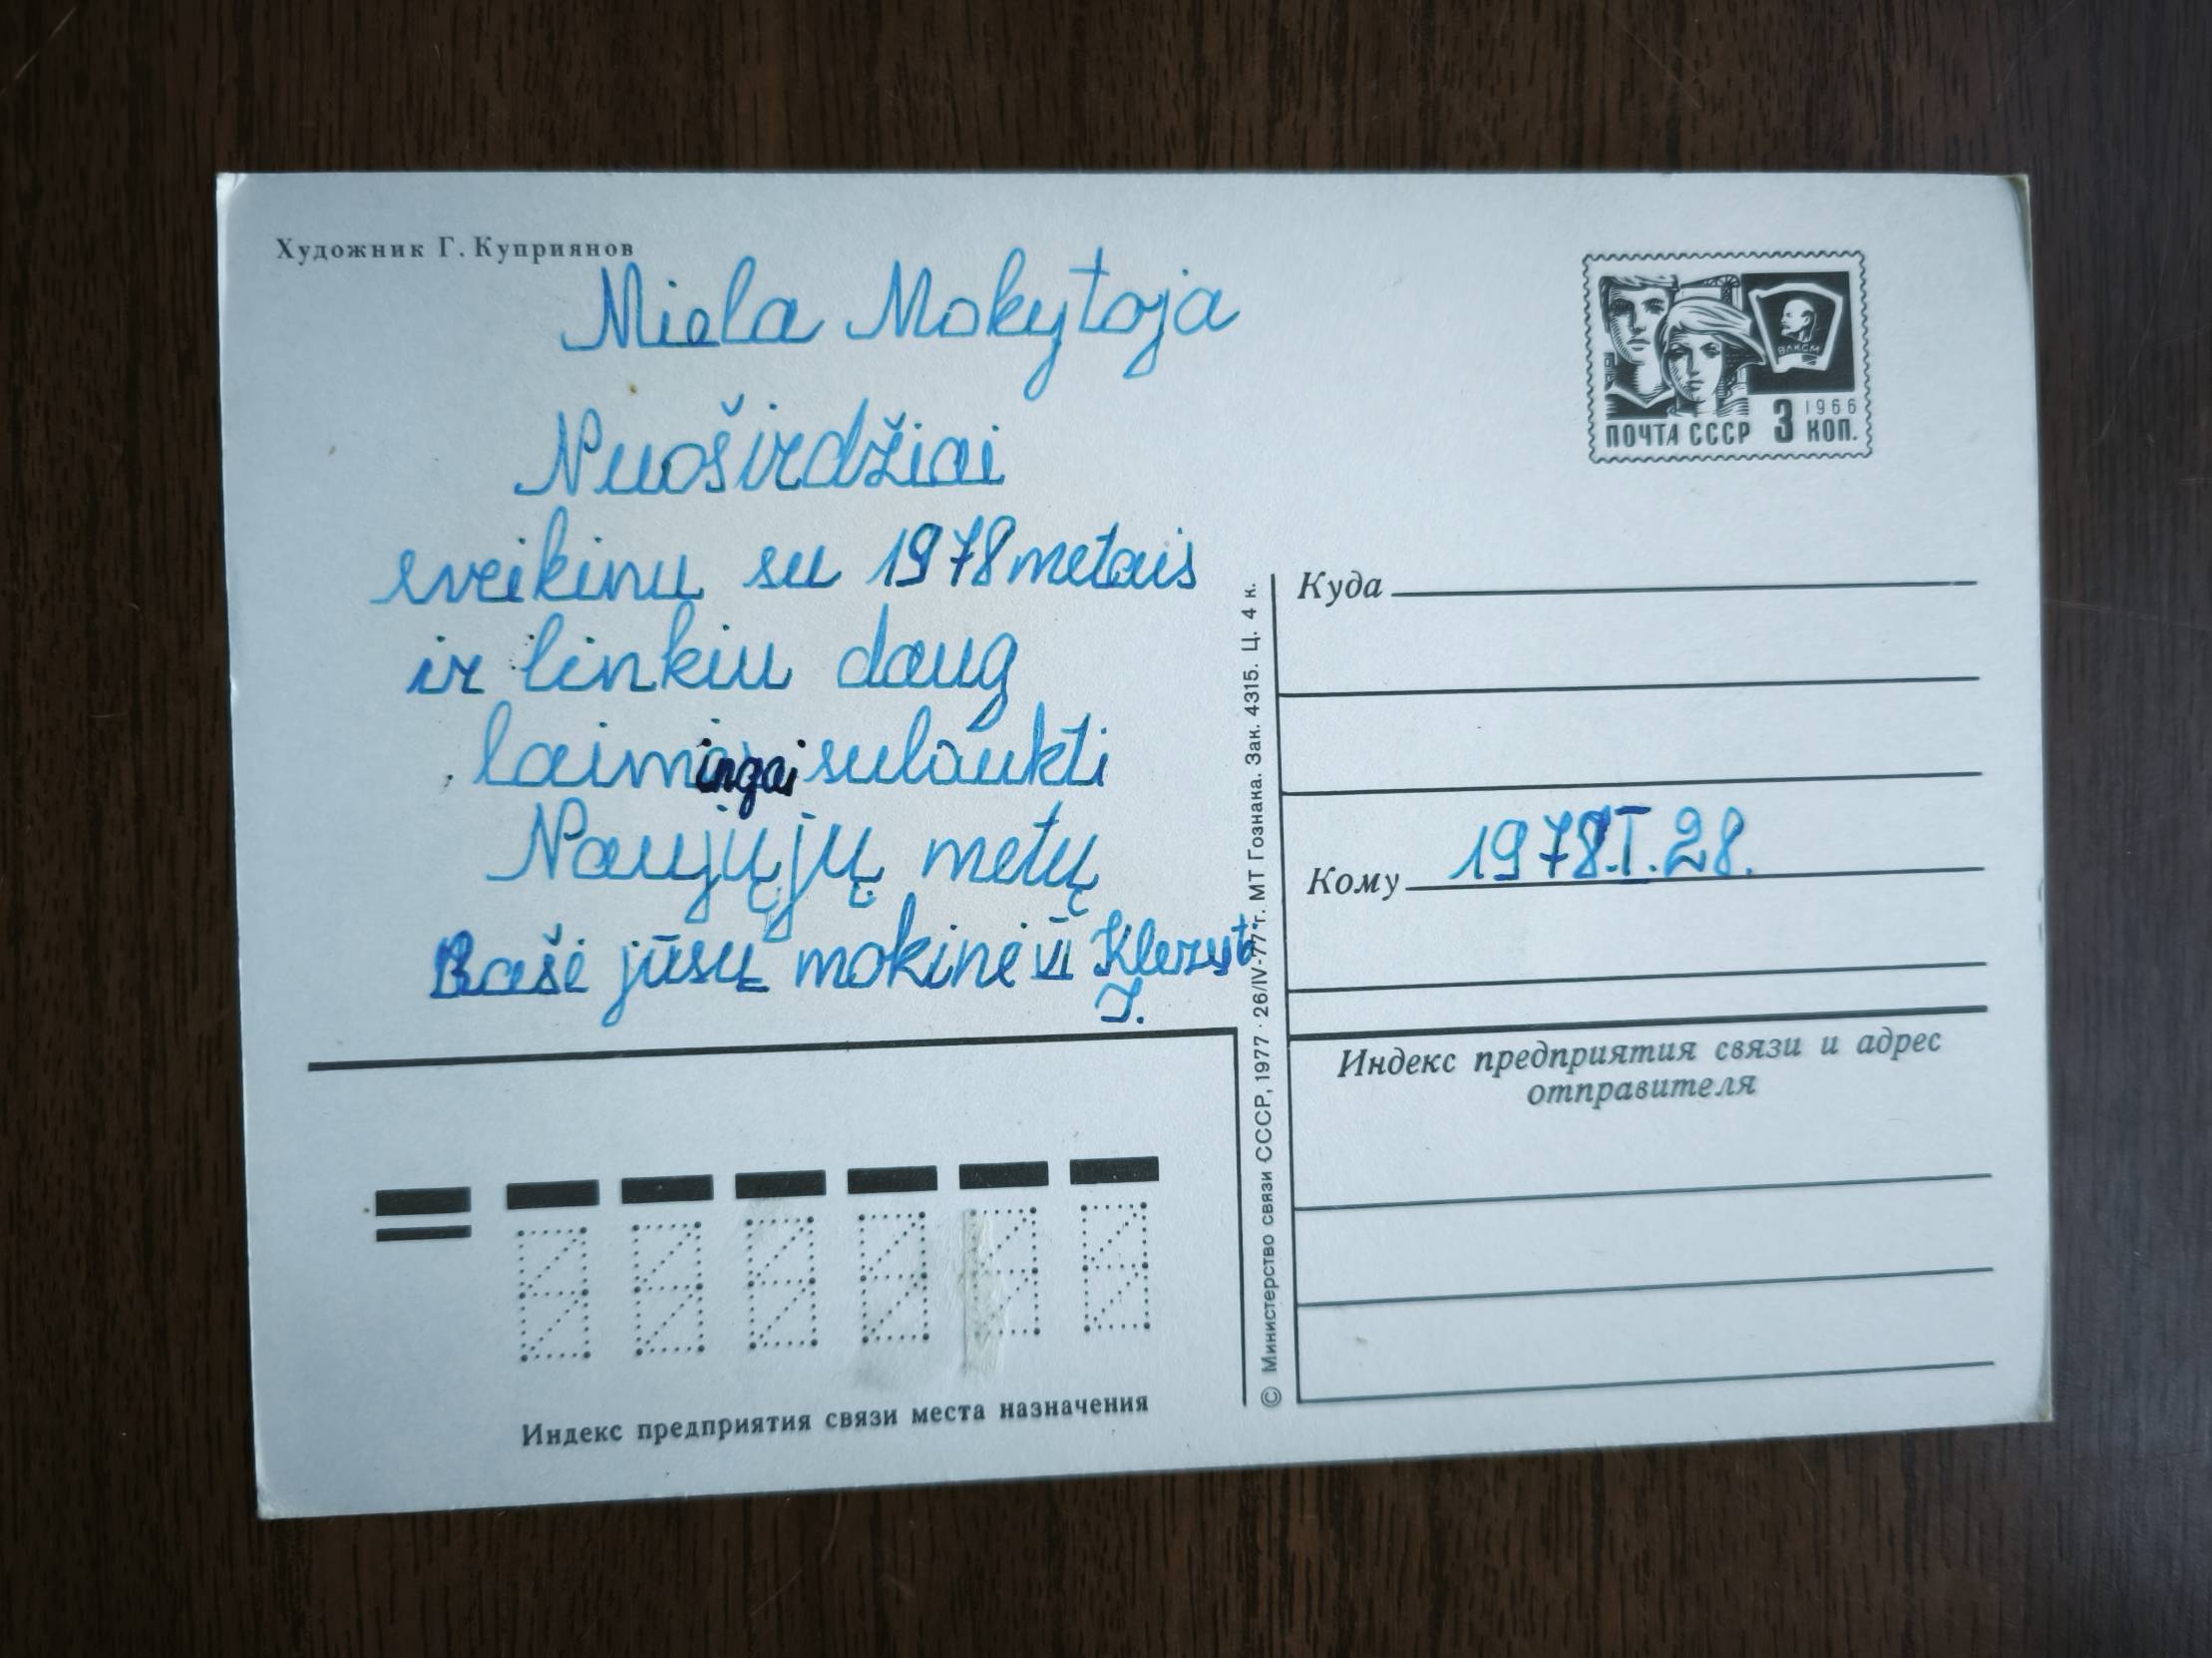 Художник Г. Куприянов
Miela Mokytoja
Nuoširdžiai
sveikinu su 1978 metais
ir linkiu daug
laimingai sulaukti
Naujųjų metų
Rašė jūsų mokinė VI
J.
ВЛКСМ
1966
ПОЧТА СССР 3 КОП.
Куда
Кому 1978.I.28.
Индекс предприятия связи и адрес
отправителя
© Министерство связи СССР, 1977 · 26/IV-77 г. МТ Гознака. Зак. 4315. Ц. 4 к.
Индекс предприятия связи места назначения